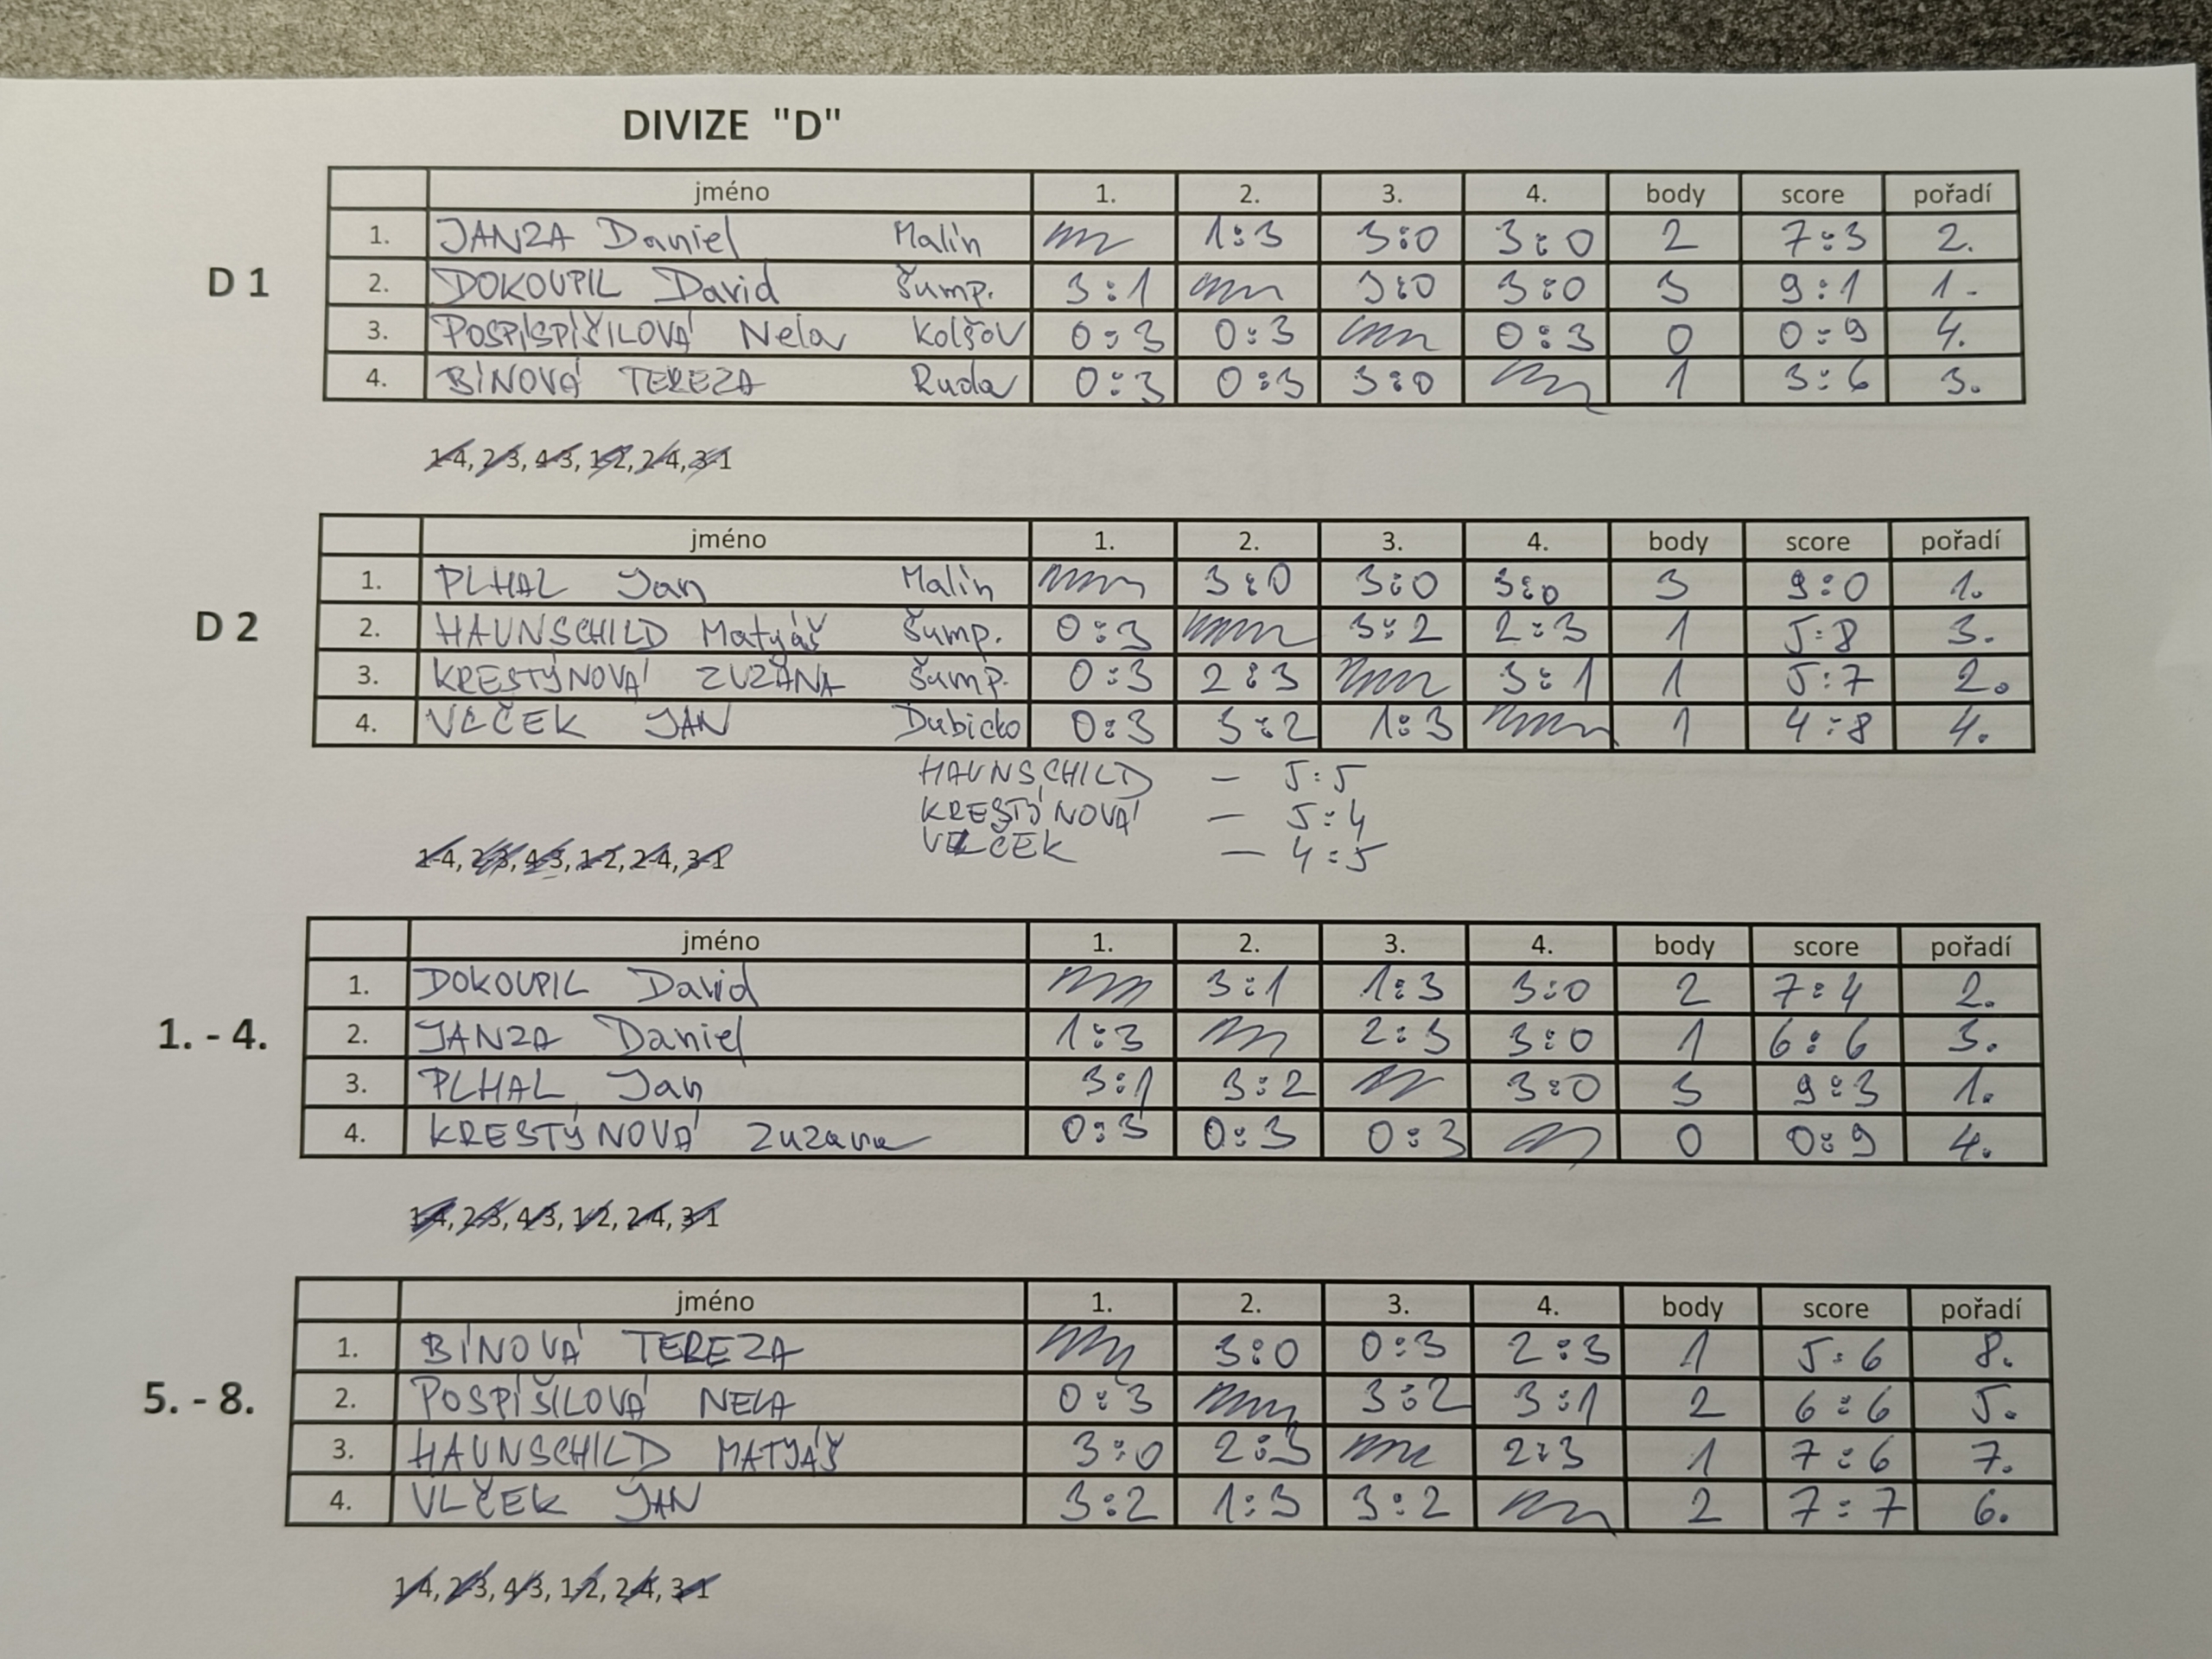 DIVIZE "D"
jméno 1. 2. 3. 4. body score pořadí
1. JANZA Daniel Malín 1:3 3:0 3:0 2 7:3 2.
D 1
2. DOKOUPIL David Šump. 3:1 3:0 3:0 3 9:1 1.
3. POSPÍSPÍŠILOVÁ Nela Kolšov 0:3 0:3 0:3 0 0:9 4.
4. BÍNOVÁ TEREZA Ruda 0:3 0:3 3:0 1 3:6 3.
1-4, 2-3, 4-3, 1-2, 2-4, 3-1
jméno 1. 2. 3. 4. body score pořadí
1. PLHAL Jan Malín 3:0 3:0 3:0 3 9:0 1.
D 2
2. HAUNSCHILD Matyáš Šump. 0:3 3:2 2:3 1 5:8 3.
3. KRESTÝNOVÁ ZUZANA Šump. 0:3 2:3 3:1 1 5:7 2.
4. VLČEK JAN Dubicko 0:3 3:2 1:3 1 4:8 4.
HAUNSCHILD – 5:5
KRESTÝNOVÁ – 5:4
VLČEK – 4:5
1-4, 2-3, 4-3, 1-2, 2-4, 3-1
jméno 1. 2. 3. 4. body score pořadí
1. DOKOUPIL David 3:1 1:3 3:0 2 7:4 2.
1. - 4.
2. JANZA Daniel 1:3 2:3 3:0 1 6:6 3.
3. PLHAL Jan 3:1 3:2 3:0 3 9:3 1.
4. KRESTÝNOVÁ Zuzana 0:3 0:3 0:3 0 0:9 4.
1-4, 2-3, 4-3, 1-2, 2-4, 3-1
jméno 1. 2. 3. 4. body score pořadí
1. BÍNOVÁ TEREZA 3:0 0:3 2:3 1 5:6 8.
5. - 8.
2. POSPÍŠILOVÁ NELA 0:3 3:2 3:1 2 6:6 5.
3. HAUNSCHILD MATYÁŠ 3:0 2:3 2:3 1 7:6 7.
4. VLČEK JAN 3:2 1:3 3:2 2 7:7 6.
1-4, 2-3, 4-3, 1-2, 2-4, 3-1